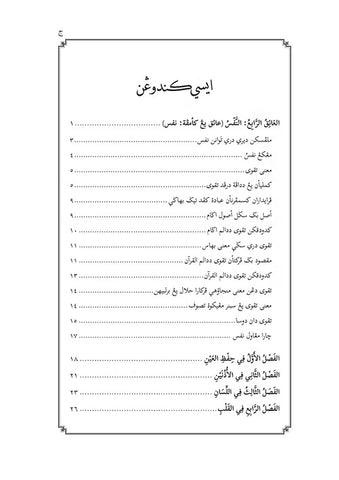 ج
ايسي كندوڠن
العَائِقُ الرَّابِعُ: النَّفْسُ (عائق يڠ كأمڤة: نفس) ١
ملڤسكن ديري دري تواانن نفس ٣
مڠكڠ نفس ٤
معنى تقوى ٥
كمليأن يڠ ددافة درڤد تقوى ٥
٩
اصل بݢ سݢل أصول اݢام ٩
كدودقكن تقوى ددالم اݢام ١٠
تقوى دري سݢي معنى بهاس ١١
مقصود بݢ ڤركتأن تقوى ددالم القرآن ١١
كدودقكن تقوى ددالم القرآن ١٣
تقوى دڠن معنى منجاوهي ڤركارا حلال يڠ برلبيهن ١٤
معنى تقوى يڠ سبنر مڠيكوة تصوف ١٤
تقوى دان دوسا ١٥
چارا مڠاول نفس ١٧
الفَصْلُ الأَوَّلُ فِي حِفْظِ العَيْنِ ١٨
الفَصْلُ الثَّانِي فِي الأُذُنَيْنِ ٢١
الفَصْلُ الثَّالِثُ فِي اللِّسَانِ ٢٣
الفَصْلُ الرَّابِعُ فِي القَلْبِ ٢٦